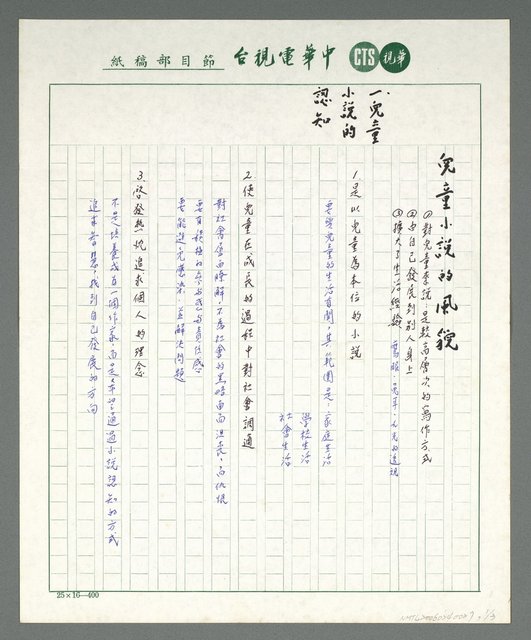 中華電視台節目部稿紙
CTS
華視
一、兒童小說的認知
兒童小說的風貌
①對兒童來說，是較高層次的寫作方式
②由自己發展到別人身上
③擴大了生活經驗
1. 是以兒童為本位的小說
要與兒童的生活有關，其範圍是：家庭生活
學校生活
社會生活
2. 使兒童在成長的過程中對社會調適
對社會層面瞭解，不為社會的黑暗面而沮喪、而仇恨
要有積極的參與感與責任感
要能進一步選決，並解決問題
3. 啟發熱忱追求個人的理念
不是培養成為一個作家，而是希望通過小說認知的方式
追求智慧，找到自己發展的方向
25×16=400